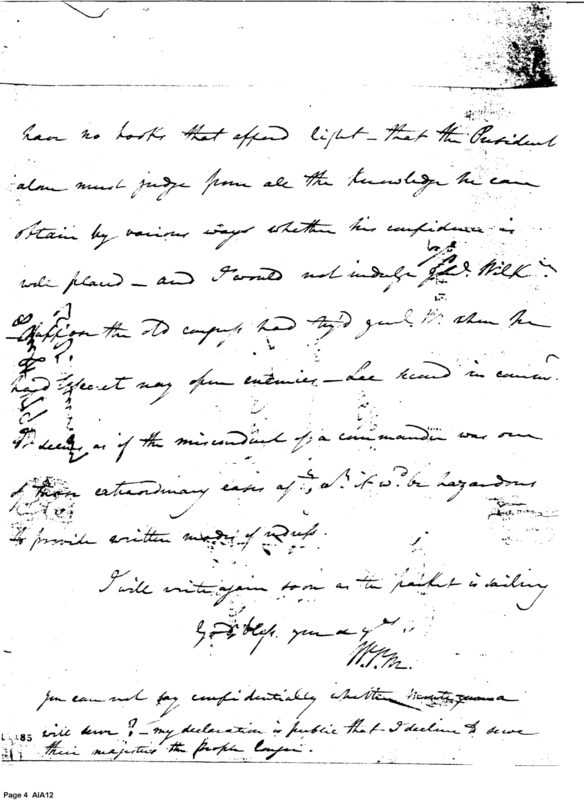 have no books that afford light - that the President
alone must judge from all the knowledge he can
obtain by various ways whether his confidence is
well placed - and I would not indulge Genl. Wilkn.
- Suppose the old congress had try'd genl. W. when he
had secret nay open enemies - Lee second in comm.
It seems as if the misconduct of a commander was one
of those extraordinary cases agt. wh. it wd. be hazardous
to provide written modes of redress.
I will write again soon as the packet is sailing
God bless you & yrs.
you can not say confidentially whether
will serve? - my declaration is public that I decline to serve
their majesties the people longer.
185
Page 4 AIA12